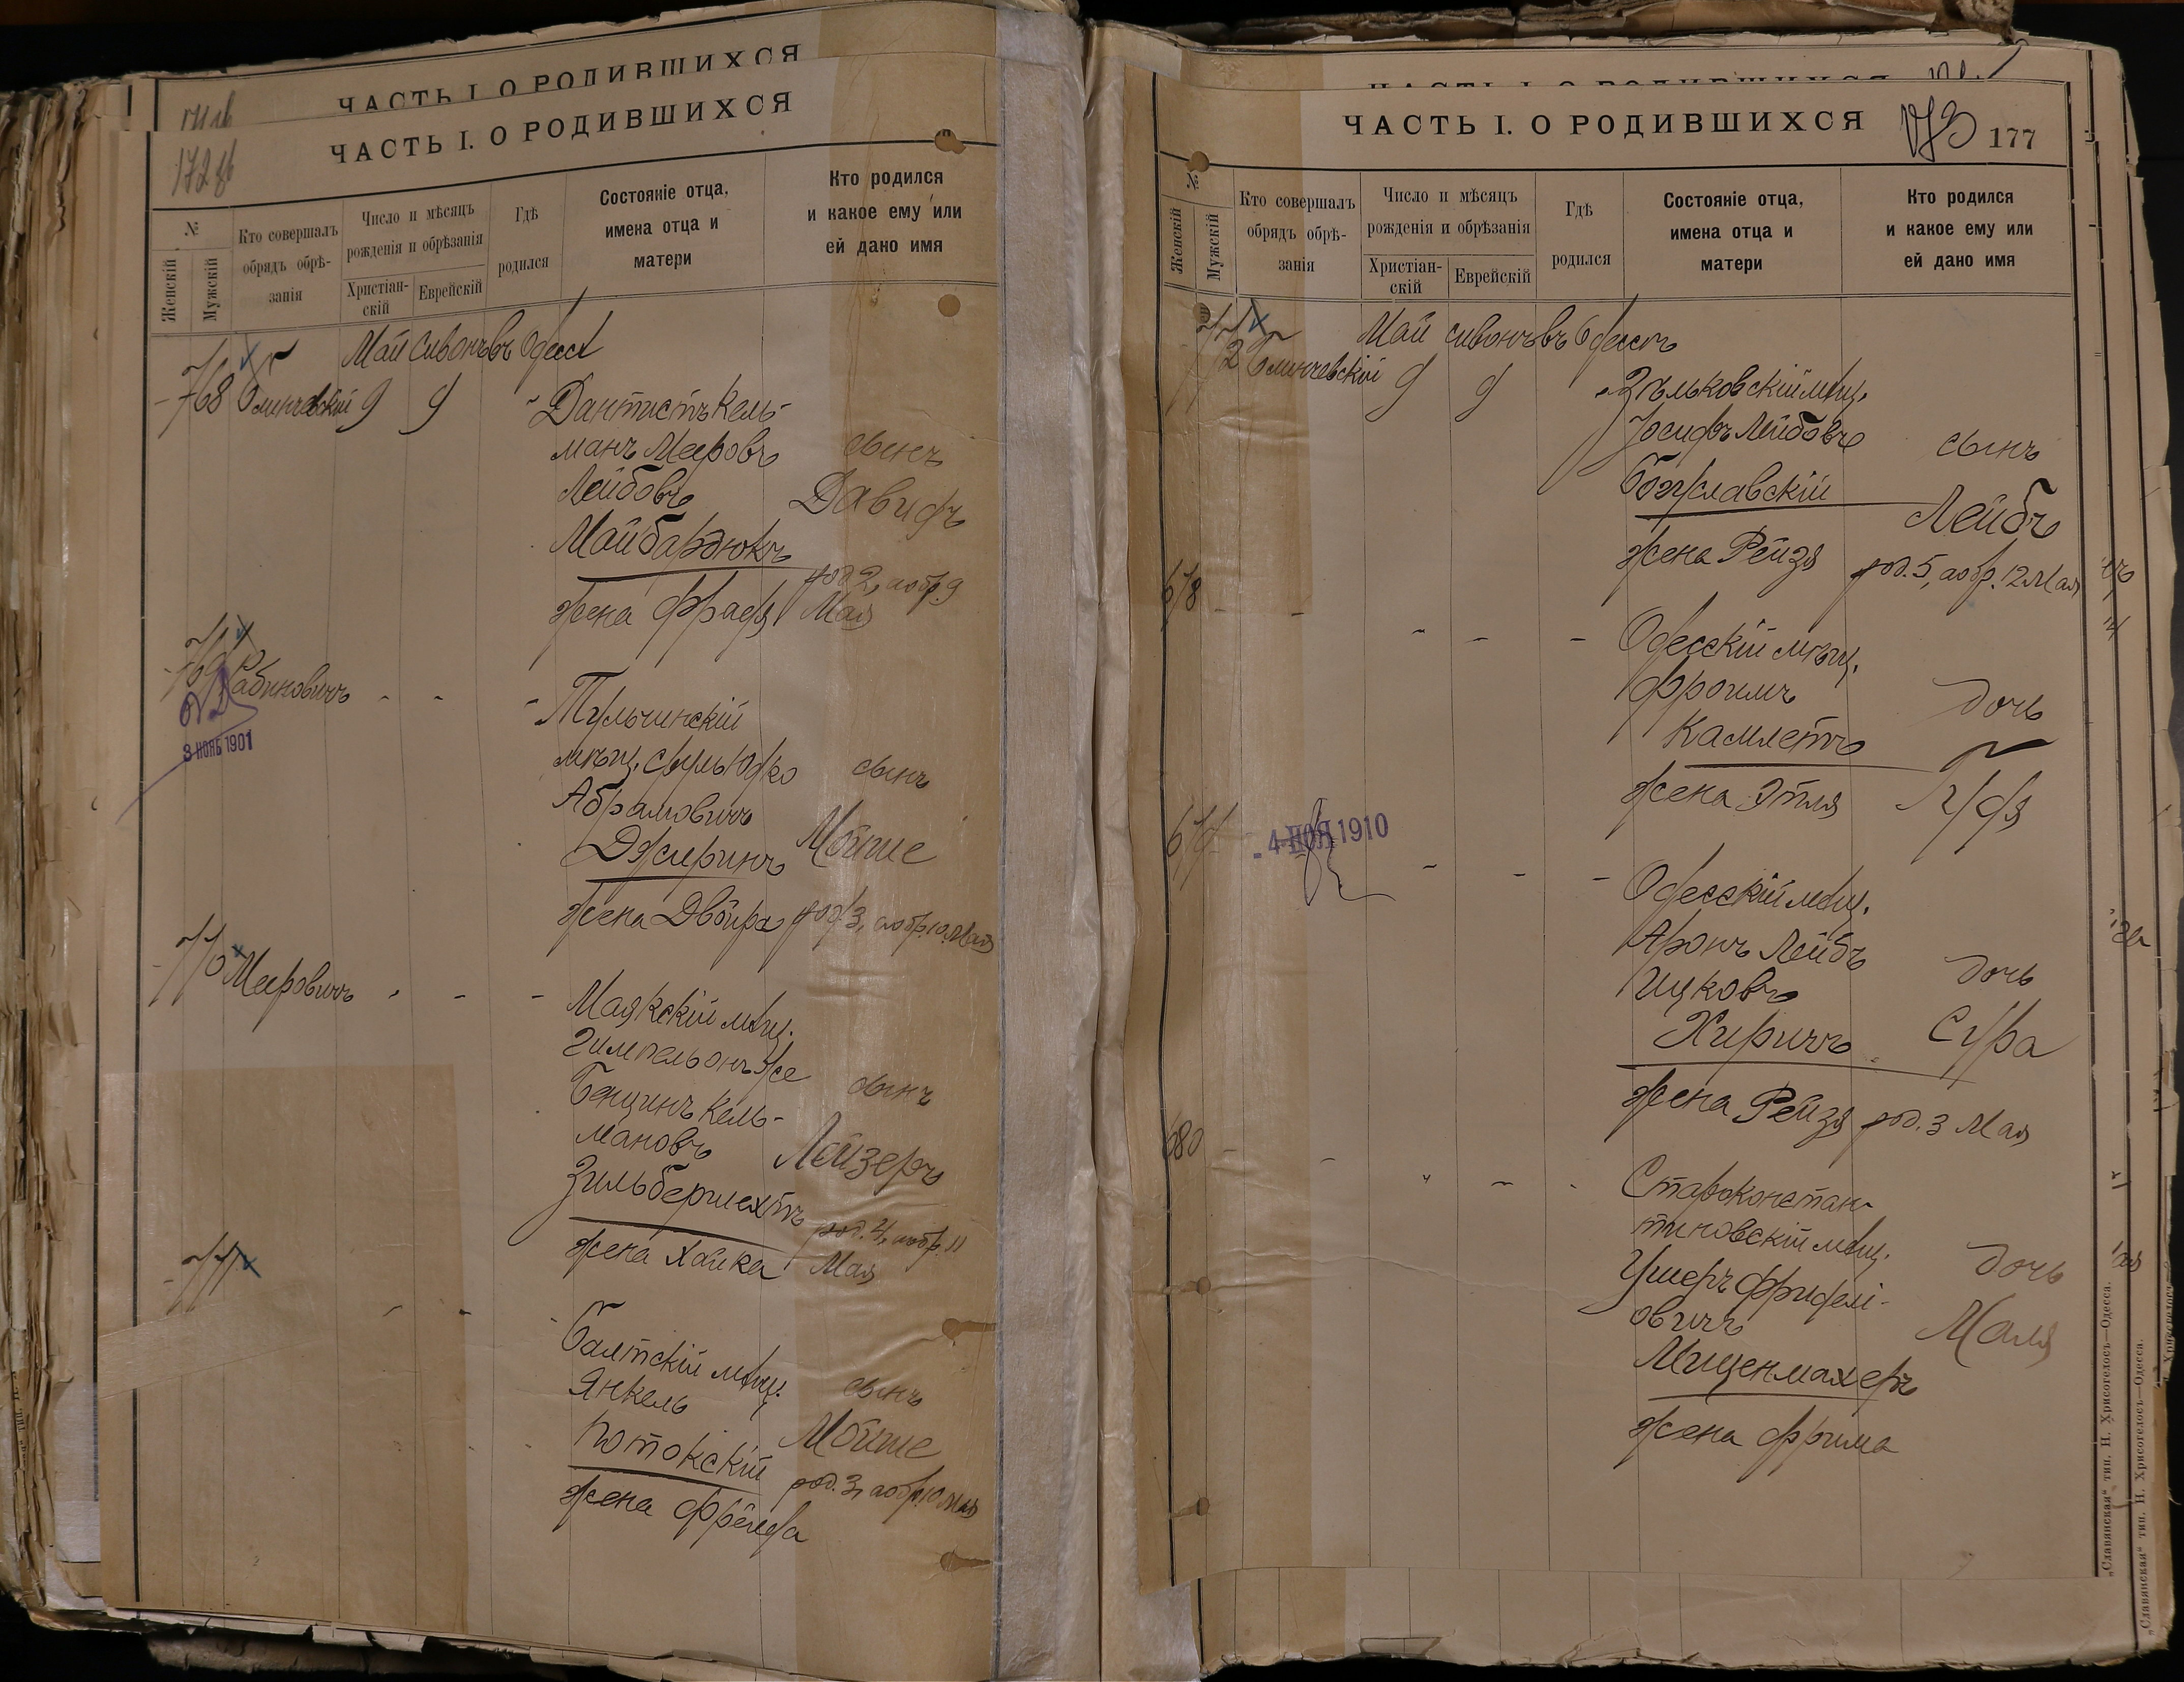 ЧАСТЬ I. О РОДИВШИХСЯ
ЧАСТЬ I. О РОДИВШИХСЯ
№
Женскій
Мужскій
Кто совершалъ
обрядъ обрѣ-
занія
Число и мѣсяцъ
рожденія и обрѣзанія
Христіан-
скій
Еврейскій
Гдѣ
родился
Состояніе отца,
имена отца и
матери
Кто родился
и какое ему или
ей дано имя
Май Сивонъ въ Одессѣ
768 9 9
Дантистъ Кель-
манъ Мееровъ
Лейбовъ
Майбардюкъ
жена Фрадя
сынъ
Давидъ
род. 2, а обр. 9
Мая
769 Рабиновичъ
3 НОЯБ 1901
Тульчинскій
мѣщ. Сруль Юдко
Абрамовичъ
Джуринъ
жена Двойра
сынъ
Мойше
род. 3, а обр. 10 Мая
770 Мееровичъ
Маякскій мѣщ.
Гимпель онъ же
Бенционъ Кель-
мановъ
Зильберлехтъ
жена Хайка
сынъ
Лейзеръ
род. 4, а обр. 11
Мая
771
Балтскій мѣщ.
Янкель
Потокскій
жена Фрейда
сынъ
Мойше
род. 3, а обр. 10 Мая
ЧАСТЬ I. О РОДИВШИХСЯ
177
№
Женскій
Мужскій
Кто совершалъ
обрядъ обрѣ-
занія
Число и мѣсяцъ
рожденія и обрѣзанія
Христіан-
скій
Еврейскій
Гдѣ
родился
Состояніе отца,
имена отца и
матери
Кто родился
и какое ему или
ей дано имя
Май Сивонъ въ Одессѣ
772 9 9
Зѣньковскій мѣщ.
Іосифъ Лейбовъ
Богуславскій
жена Рейзя
сынъ
Лейбъ
род. 5, а обр. 12 Мая
678
Одесскій мѣщ.
Фроимъ
Камлетъ
жена Этля
дочь
679
4 НОЯ 1910
Одесскій мѣщ.
Аронъ Лейбъ
Ицковъ
Хиричъ
жена Рейзя
дочь
Сура
род. 3 Мая
680
Староконстан-
тиновскій мѣщ.
Ушеръ Фридель-
овичъ
Миценмахеръ
жена Фрима
дочь
Маля
„Славянская“ тип. Н. Хрисогелосъ—Одесса.
„Славянская“ тип. Н. Хрисогелосъ—Одесса.